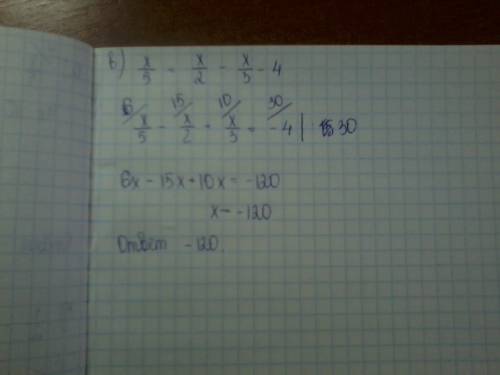 в) x/5 - x/2 - x/3 - 4
6/ x/5 - 15/ x/2 + 10/ x/3 = 30/ -4 | 30
6x - 15x + 10x = -120
x = -120
Ответ -120.